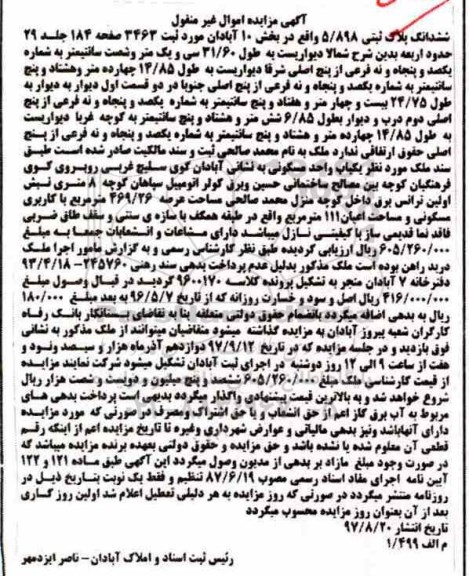 آگهی مزایده اموال غیر منقول
ششدانگ پلاک ثبتی ۵/۸۹۸ واقع در بخش ۱۰ آبادان مورد ثبت ۳۴۶۳ صفحه ۱۸۴ جلد ۲۹
حدود اربعه بدین شرح شمالا دیواریست به طول ۳۱/۶۰ سی و یک متر وشصت سانتیمتر به شماره
یکصد و پنجاه و نه فرعی از پنج اصلی شرقا دیواریست به طول ۱۴/۸۵ چهارده متر وهشتاد و پنج
سانتیمتر به شماره یکصد و پنجاه و نه فرعی از پنج اصلی جنوبا در دو قسمت اول دیوار به دیوار به
طول ۲۴/۷۵ بیست و چهار متر و هفتاد و پنج سانتیمتر به شماره یکصد و پنجاه و نه فرعی از پنج
اصلی دوم درب و دیوار بطول ۶/۸۵ شش متر و هشتاد و پنج سانتیمتر به کوچه غربا دیواریست
به طول ۱۴/۸۵ چهارده متر و هشتاد و پنج سانتیمتر به شماره یکصد و پنجاه و نه فرعی از پنج
اصلی حقوق ارتفاقی ندارد ملک به نام محمد صالحی ثبت و سند مالکیت صادر شده است طبق
سند ملک مورد نظر یکباب واحد مسکونی به نشانی آبادان کوی سلیج غربی روبروی کوی
فرهنگیان کوچه بین مصالح ساختمانی حسین ویرق کولر اتومبیل سپاهان کوچه متری نبش
اولین ترانس برق داخل کوچه منزل محمد صالحی مساحت عرصه ۴۶۹/۲۶ مترمربع با کاربری
مسکونی و مساحت اعیان ۱۱۱ مترمربع واقع در طبقه همکف با سازه ی سنتی و سقف طاق ضربی
فاقد نما قدیمی ساز با کیفیتی نازل میباشد دارای مشاعات و انشعابات جمعا به مبلغ
۶۰۵/۲۶۰/۰۰۰ ریال ارزیابی گردیده طبق نظر کارشناس رسمی و به گزارش مامور اجرا ملک
درید راهن بوده است ملک مذکور بدلیل عدم پرداخت بدهی سند رهنی ۲۴۵۷۶۰-۹۳/۴/۱۸
دفترخانه ۷ آبادان منجر به تشکیل پرونده کلاسه ۹۶۰۰۱۷۰ گردید در قبال وصول مبلغ
۴۱۶/۰۰۰/۰۰۰ ریال اصل و سود و خسارت روزانه که از تاریخ ۹۶/۵/۷ به بعد مبلغ ۱۸۰/۰۰۰
ریال به بدهی اضافه میگردد بانضمام حقوق دولتی متعلقه بنا به تقاضای بستانکار بانک رفاه
کارگران شعبه پیروز آبادان به مزایده گذاشته میشود متقاضیان میتوانند از ملک مذکور به نشانی
فوق بازدید و در جلسه مزایده که در تاریخ ۹۷/۹/۱۲ دوازدهم آذرماه هزار و سیصد ونود و
هفت از ساعت ۹ الی ۱۲ روز دوشنبه در اجرای ثبت آبادان تشکیل میشود شرکت نمایند مزایده
از قیمت کارشناسی ملک مبلغ ۶۰۵/۲۶۰/۰۰۰ ششصد و پنج میلیون و دویست و شصت هزار ریال
شروع خواهد شد و به بالاترین قیمت پیشنهادی واگذار میگردد بدیهی است پرداخت بدهی های
مربوط به آب برق گاز اعم از حق انشعاب و یا حق اشتراک ومصرف در صورتی که مورد مزایده
دارای آنهاباشد ونیز بدهی مالیاتی و عوارض شهرداری وغیره تا تاریخ مزایده اعم از اینکه رقم
قطعی آن معلوم شده یا نشده باشد و حق مزایده و حقوق دولتی بعهده برنده مزایده میباشد که
در صورت وجود مبلغ مازاد بر بدهی از مدیون وصول میگردد این آگهی طبق ماده ۱۲۱ و ۱۲۲
آیین نامه اجرای مفاد اسناد رسمی مصوب ۸۷/۶/۱۹ تنظیم و فقط یک نوبت بتاریخ ذیل در
روزنامه منتشر میگردد در صورتی که روز مزایده به هر دلیلی تعطیل اعلام شد اولین روز کاری
بعد از آن بعنوان روز مزایده محسوب میگردد
تاریخ انتشار ۹۷/۸/۲۰
م الف ۱/۴۹۹
رئیس ثبت اسناد و املاک آبادان - ناصر ایزدمهر